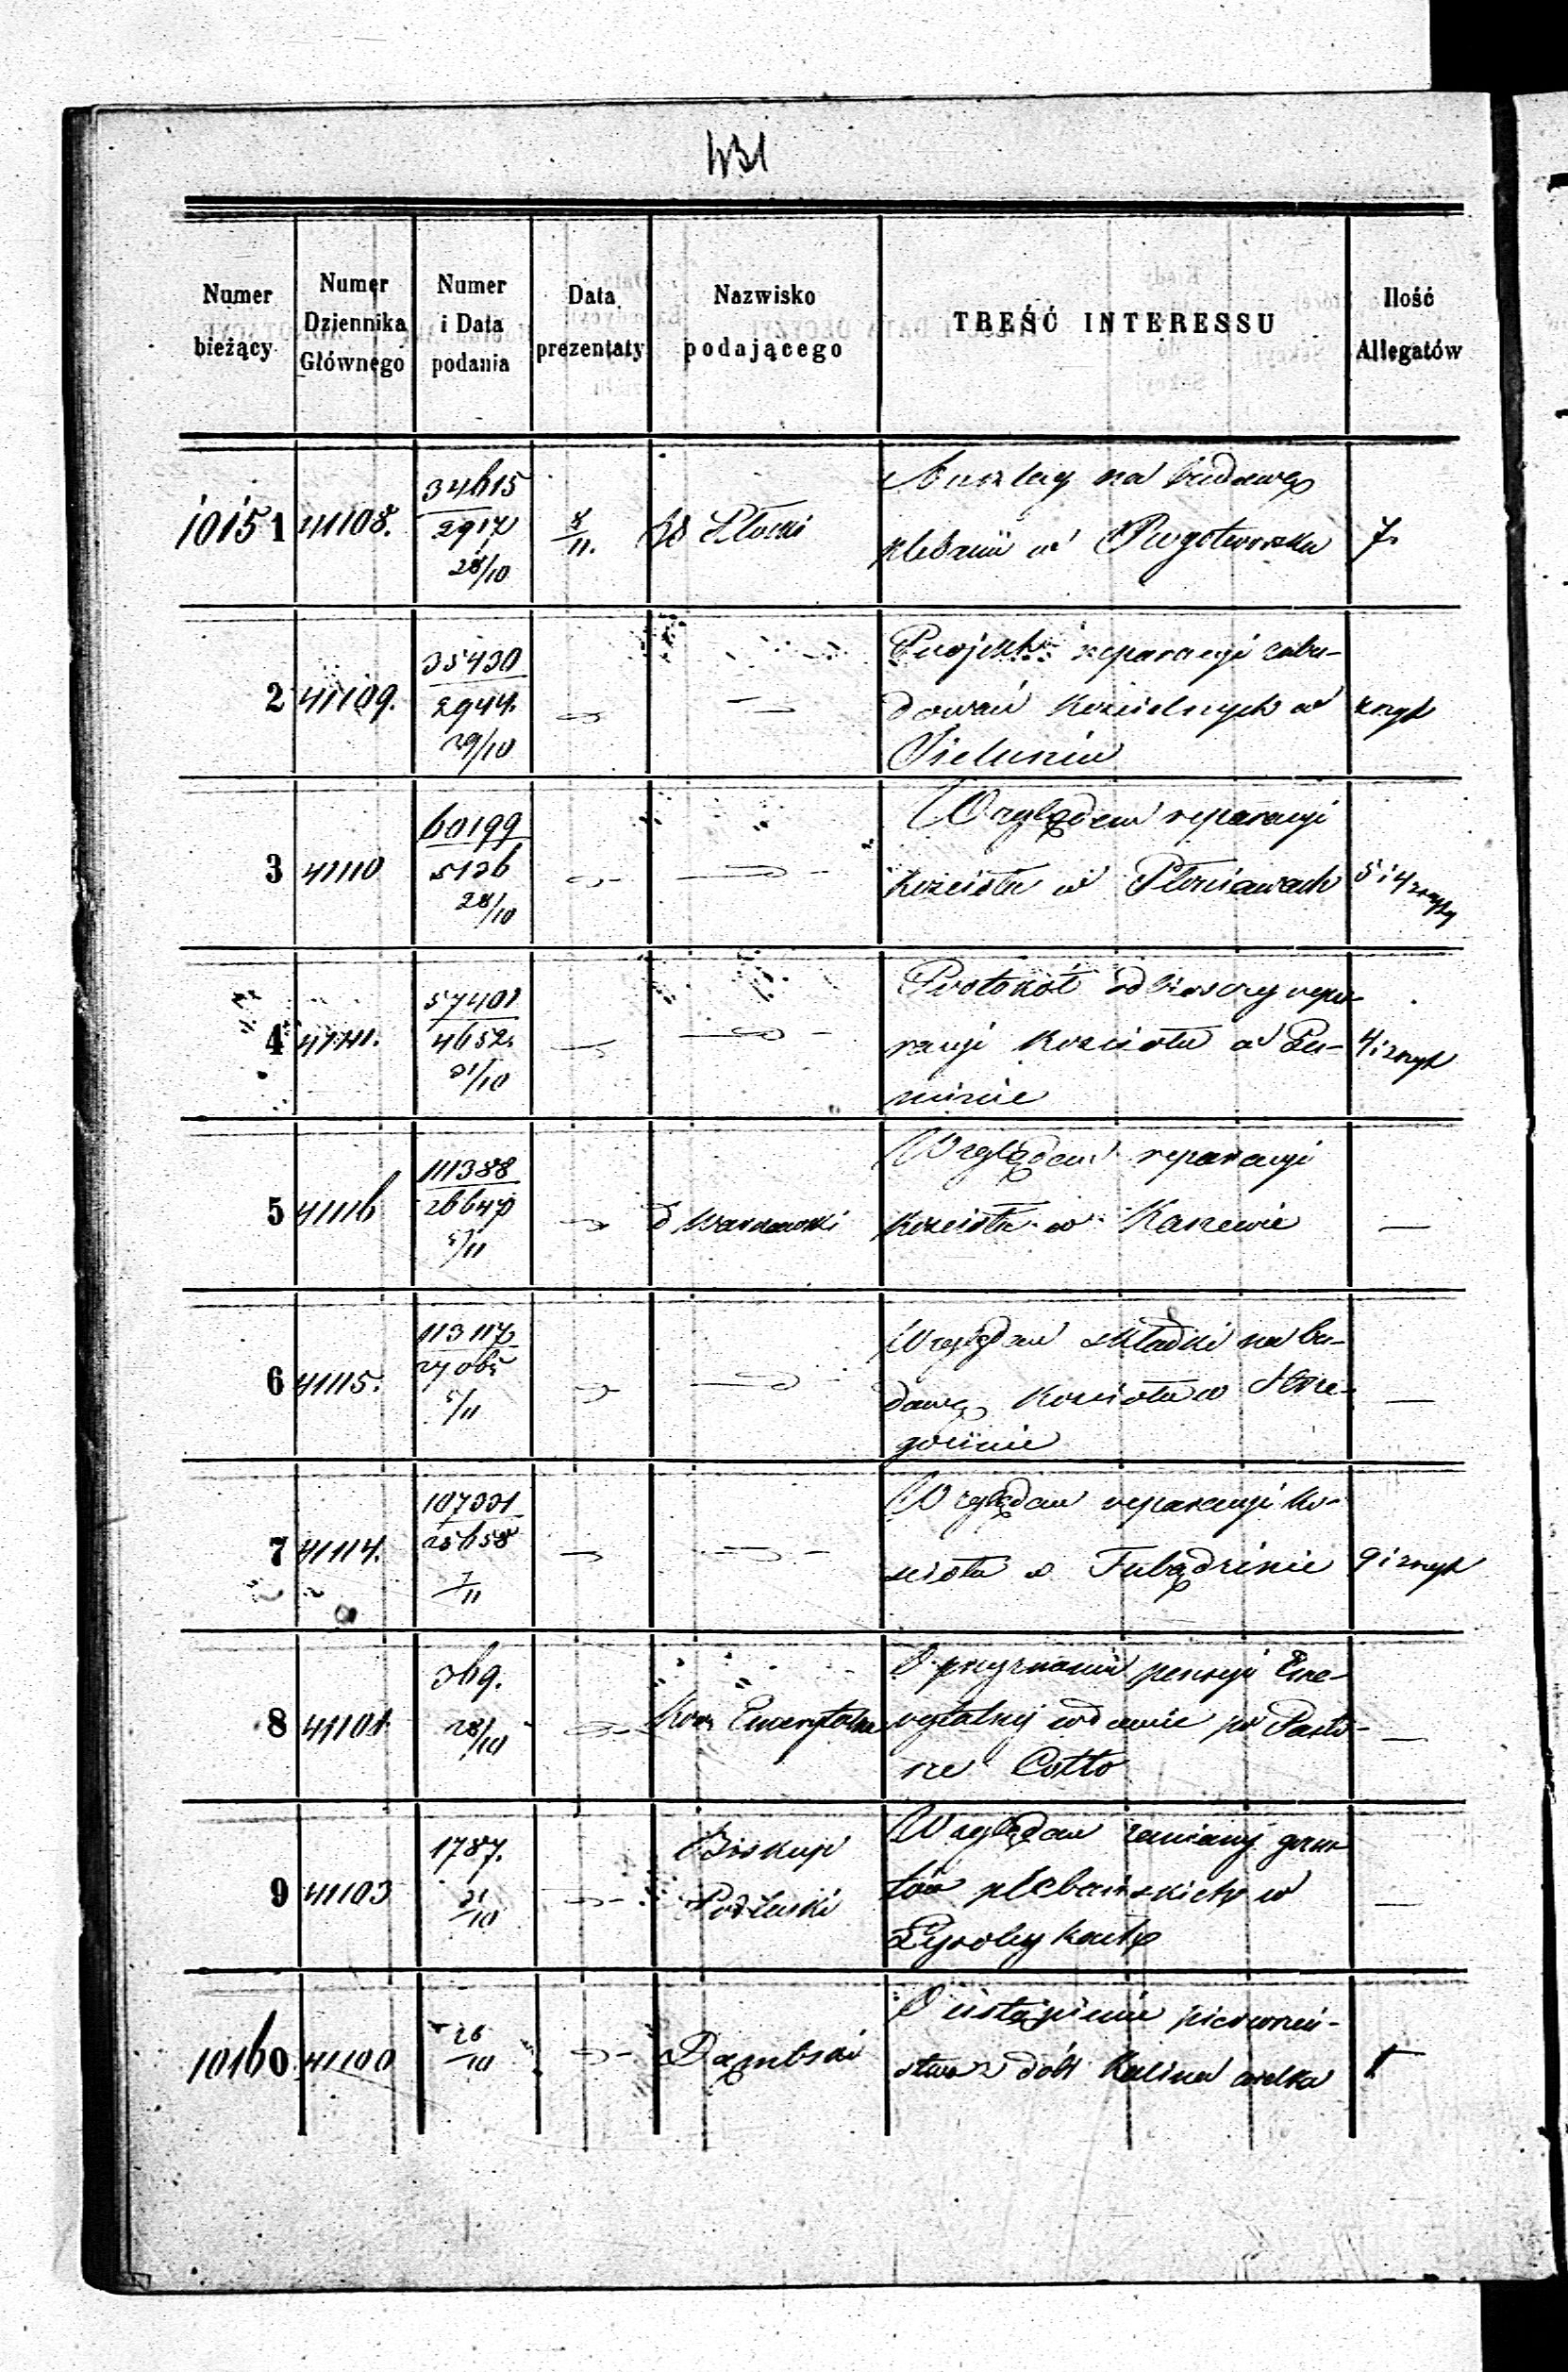 431
Numer bieżący
Numer Dziennika Głównego
Numer i Data podania
Data prezentaty
Nazwisko podającego
TREŚĆ INTERESSU
Ilość Allegatów
10151 41108. 34615 / 2917 28/10 8/11. Płocki
Anszlag na budowę
plebanii w Pwgotworsku 7.
2 41109. 35430 / 2944. 29/10
Projekt reparacyi zabu-
dowań kościelnych w
Sieluniu
3 41110 60199 / 5126 28/10
Względem reparacyi
kościoła w Płoniawach
4 41111. 57401 / 4652. 31/10
Protokół odbiorczy repa-
racyi kościoła w
5 41116 111388 / 26647 5/11 Warszawski
Względem reparacyi
kościoła w Kaszewie —
6 41115. 113117 / 27065 5/11
Względem składki na bu-
dowę kościoła w Strze-
gocinie —
7 41114. 107331 / 25658 7/11
Względem reparacyi ko-
ścioła w Tubądzinie
8 41101 369. 28/10 Kom Emerytalna
O przyznaniu pensyi Eme-
rytalnej wdowie po Pasto-
rze Cotto —
9 41103 1787. 31/10 Biskup
Podlaski
Względem zamiany grun-
tów plebańskich w
Łysobykach —
10160 41100 26/10 Dąmbski
O ustąpieniu pierwszeń-
stwa z dóbr Kalina wielka 1